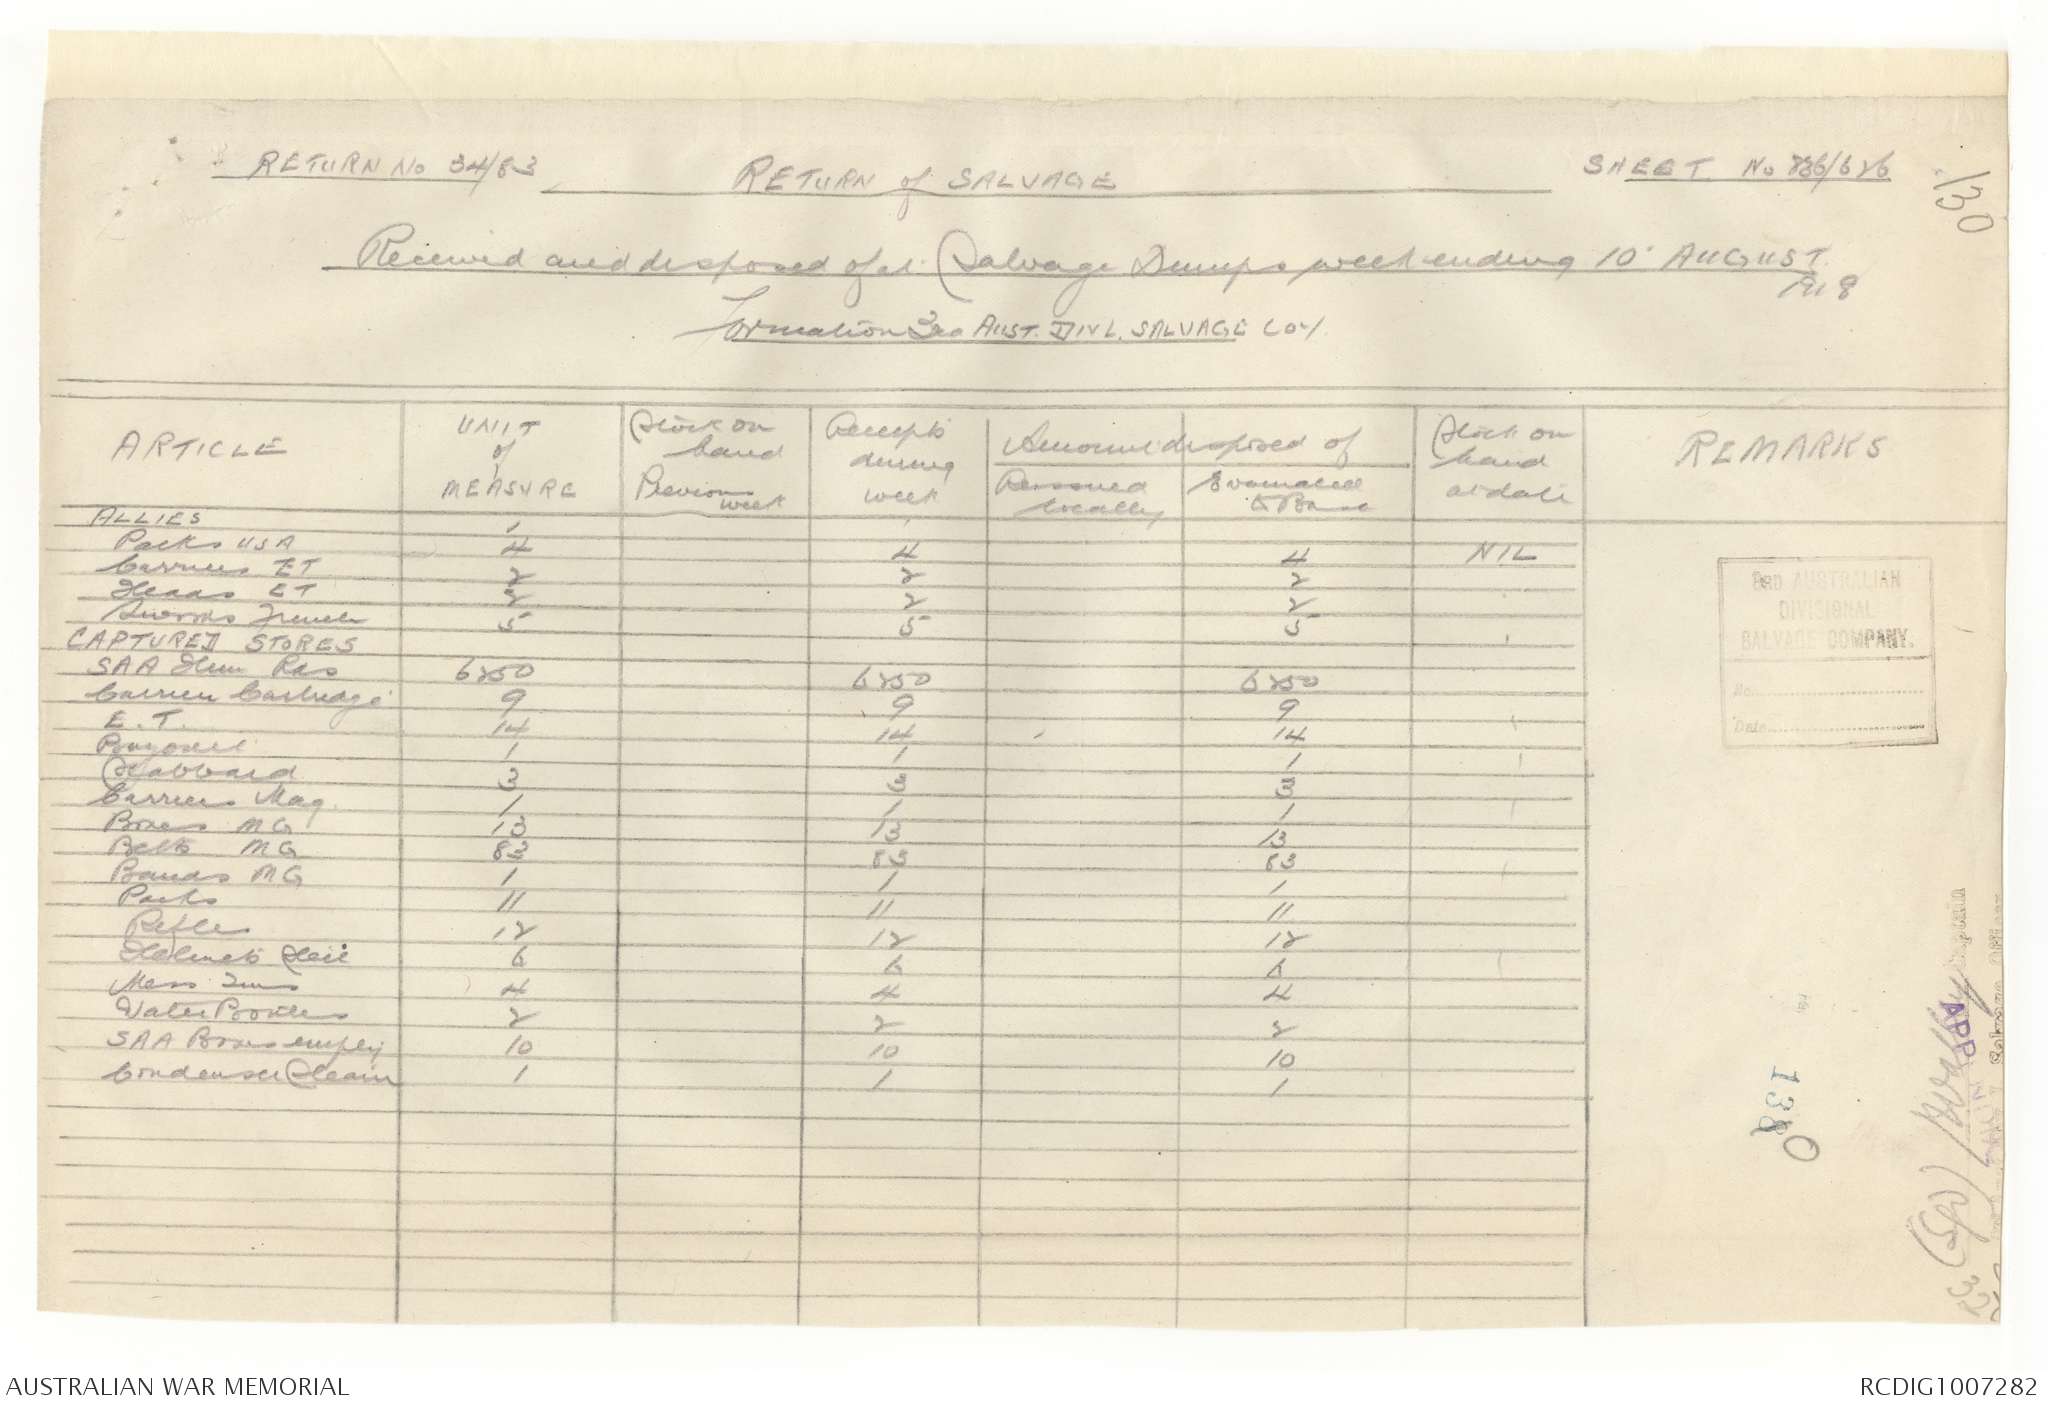 RETURN No 34/83
RETURN of SALVAGE
SHEET No 786/626
130
Received and disposed of at Salvage Dumps week ending 10 AUGUST
1918
Formation 3RD AUST. DIVL. SALVAGE COY.
ARTICLE
UNIT of MEASURE
Stock on hand Previous week
Receipts during week
Amount disposed of
Reissued locally
Evacuated to Base
Stock on hand at date
REMARKS
ALLIES
Packs USA 4 4 4 NIL
Carriers ET 2 2 2
Heads ET 2 2 2
Swords French 5 5 5
CAPTURED STORES
SAA Hun Rds 6250 6250 6250
Carriers Cartridge 9 9 9
E.T. 14 14 14
Bayonet 1 1 1
Scabbard 3 3 3
Carriers Mag. 1 1 1
Boxes MG 13 13 13
Belts MG 83 83 83
Bands MG 1 1 1
Packs 11 11 11
Rifles 12 12 12
Helmets Steel 6 6 6
Mess Tins 4 4 4
Water Bottles 2 2 2
SAA Boxes empty 10 10 10
Condenser Steam 1 1 1
3RD AUSTRALIAN
DIVISIONAL
SALVAGE COMPANY.
No.
Date
APP
138
(Sgd)
AUSTRALIAN WAR MEMORIAL
RCDIG1007282